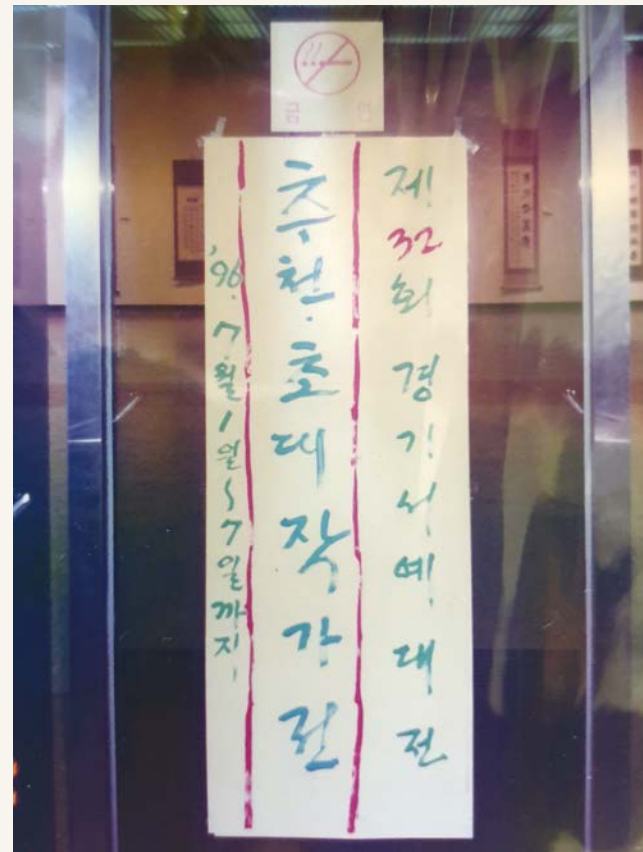 금 연
제32회 경기서예대전
추천·초대작가전
'96. 7월 1일 ~ 7일까지